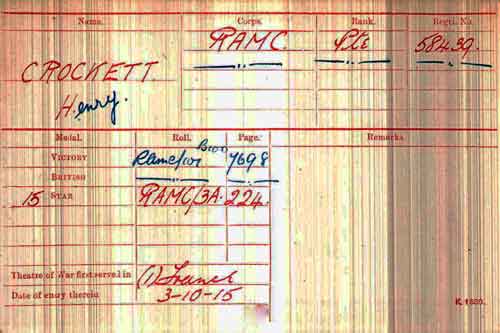 Name. Corps. Rank. Regtl. No.
R.A.M.C. Pte 58439.
CROCKETT
Henry.
Medal. Roll. Page. Remarks.
VICTORY 7698
BRITISH
15 STAR RAMC/3A. 224.
Theatre of War first served in (1) France
Date of entry therein 3-10-15
K. 1380.